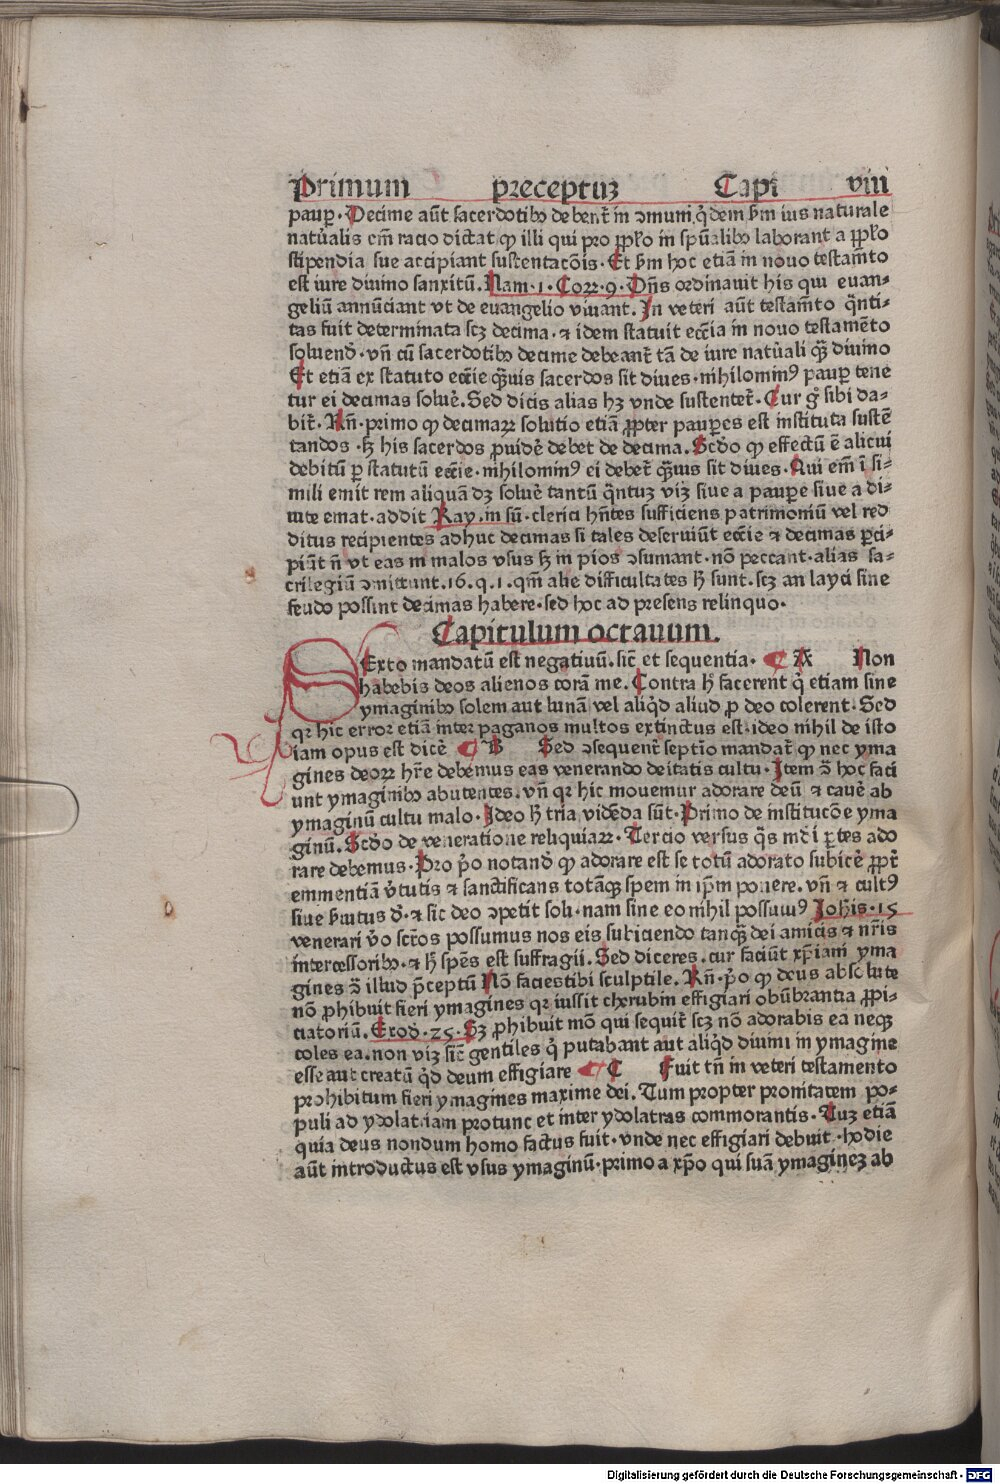 Primum preceptuꝫ Capi viii
paup̄. Decime aūt sacerdotibꝰ debent̄ in ꝯmuni q̇dem ẜm ius naturale
natu̇alis em̄ racio dictat ꝙ illi qui pro pp̄lo in spūalibꝰ laborant a pp̄lo
stipendia sue accipiant sustentacōis. Et ẜm hoc etiā in nouo testam̄to
est iure diuino sanxitū. Nam .1. Corꝝ .9. Dn̄s ordinauit his qui euan-
geliū annūciant vt de euangelio viuant. In veteri aūt testam̄to q̄nti-
tas fuit determinata scꝫ decima. ⁊ idem statuit eccīa in nouo testamēto
soluend̄. vn̄ cū sacerdotibꝰ decime debeant̄ tā de iure natu̇ali qꝫ̄ diuino
Et etiā ex statuto eccīe qꝫ̄uis sacerdos sit diues. nihilominꝰ paup̄ tene
tur ei decimas solue̅. Sed dicis alias hꝫ vnde sustentet̄. Cur gͦ sibi da-
bit̄. Rn̄. primo ꝙ decimaꝝ solutio etiā ꝓpter paup̄es est instituta sustē
tandos. sꝫ his sacerdos ꝓuide̅ debet de decima. Scd̄o ꝙ effectū ē alicui
debitū ꝑ statutū eccīe. nihilominꝰ ei debet̄ qꝫ̄uis sit diues. Qui em̄ ī si-
mili emit rem aliquā dꝫ solue̅ tantū q̄ntuꝫ viꝫ siue a paup̄e siue a di-
uite emat. addit Ray. in sū. clerici hn̄tes sufficiens patrimoniū vel red
ditus recipientes adhuc decimas si tales deseruiūt eccīe ⁊ decimas ꝑci-
piāt n̄ vt eas in malos vsus sꝫ in pios ꝯsumant. nō peccant. alias sa-
crilegiū ꝯmittunt. 16. q. 1. qm̄ alie difficultates hͨ sunt. scꝫ an layci sine
feudo possint decimas habere. sed hoc ad presens relinquo.
Capitulum octauum.
SExto mandatū est negatiuū. sic̄ et sequentia. ¶ A Non
habebis deos alienos corā me. Contra hͨ facerent q̇ etiam sine
ymaginibꝰ solem aut lunā vel aliq̇d aliud ꝓ deo colerent. Sed
qꝛ hic error etiā inter paganos multos extinctus est. ideo nihil de isto
iam opus est dice̅ ¶ B Sed ꝯsequent̄ septīo mandat̄ ꝙ nec yma
gines deoꝝ hr̄e debemus eas venerando deitatis cultu. Item ꝯ̄ hoc faci
unt ymaginibꝰ abutentes. vn̄ qꝛ hic mouemur adorare deū ⁊ caue̅ ab
ymaginū cultu malo. Ideo hͨ tria vidēda sūt. Primo de institucōe yma
ginū. Scd̄o de veneratione reliquiaꝝ. Tercio versus q̄s mc̄i ꝑtes ado
rare debemus. Pro p̄o notand̄ ꝙ adorare est se totū adorato subice̅ ꝓpt̄
emmentiā v̇tutis ⁊ sanctificans totāqꝫ spem in ip̄m ponere. vn̄ ⁊ cultꝰ
siue ẜuitus d̄. ⁊ sic deo ꝯpetit soli. nam sine eo nihil possumꝰ Joh̄is. 15
venerari v̇o sct̄os possumus nos eis subiciendo tanqꝫ̄ dei amicis ⁊ nr̄is
intercessoribꝰ. ⁊ hͨ sp̄es est suffragii. Sed diceres. cur faciūt xp̄iani yma
gines ꝯ̄ illud p̄ceptū Nō facies tibi sculptile. Rn̄. p̄o ꝙ deus absolute
nō ꝓhibuit fieri ymagines qꝛ iussit cherubin effigiari obūbrantia ꝓpi-
ciatoriū. Exod̄. 25. Sꝫ ꝓhibuit mō qui sequit̄ scꝫ nō adorabis ea neqꝫ
coles ea. non viꝫ sic̄ gentiles q̇ putabant aut aliq̇d diuini in ymagine
esse aut creatū q̇d deum effigiare ¶ C Fuit tn̄ in veteri testamento
prohibitum fieri ymagines maxime dei. Tum propter pronitatem po-
puli ad ydolatriam protunc et inter ydolatras commorantis. Tuꝫ etiā
quia deus nondum homo factus fuit. vnde nec effigiari debuit. hodie
aūt introductus est vsus ymaginū. primo a xp̄o qui suā ymagineꝫ ab
Digitalisierung gefördert durch die Deutsche Forschungsgemeinschaft - DFG